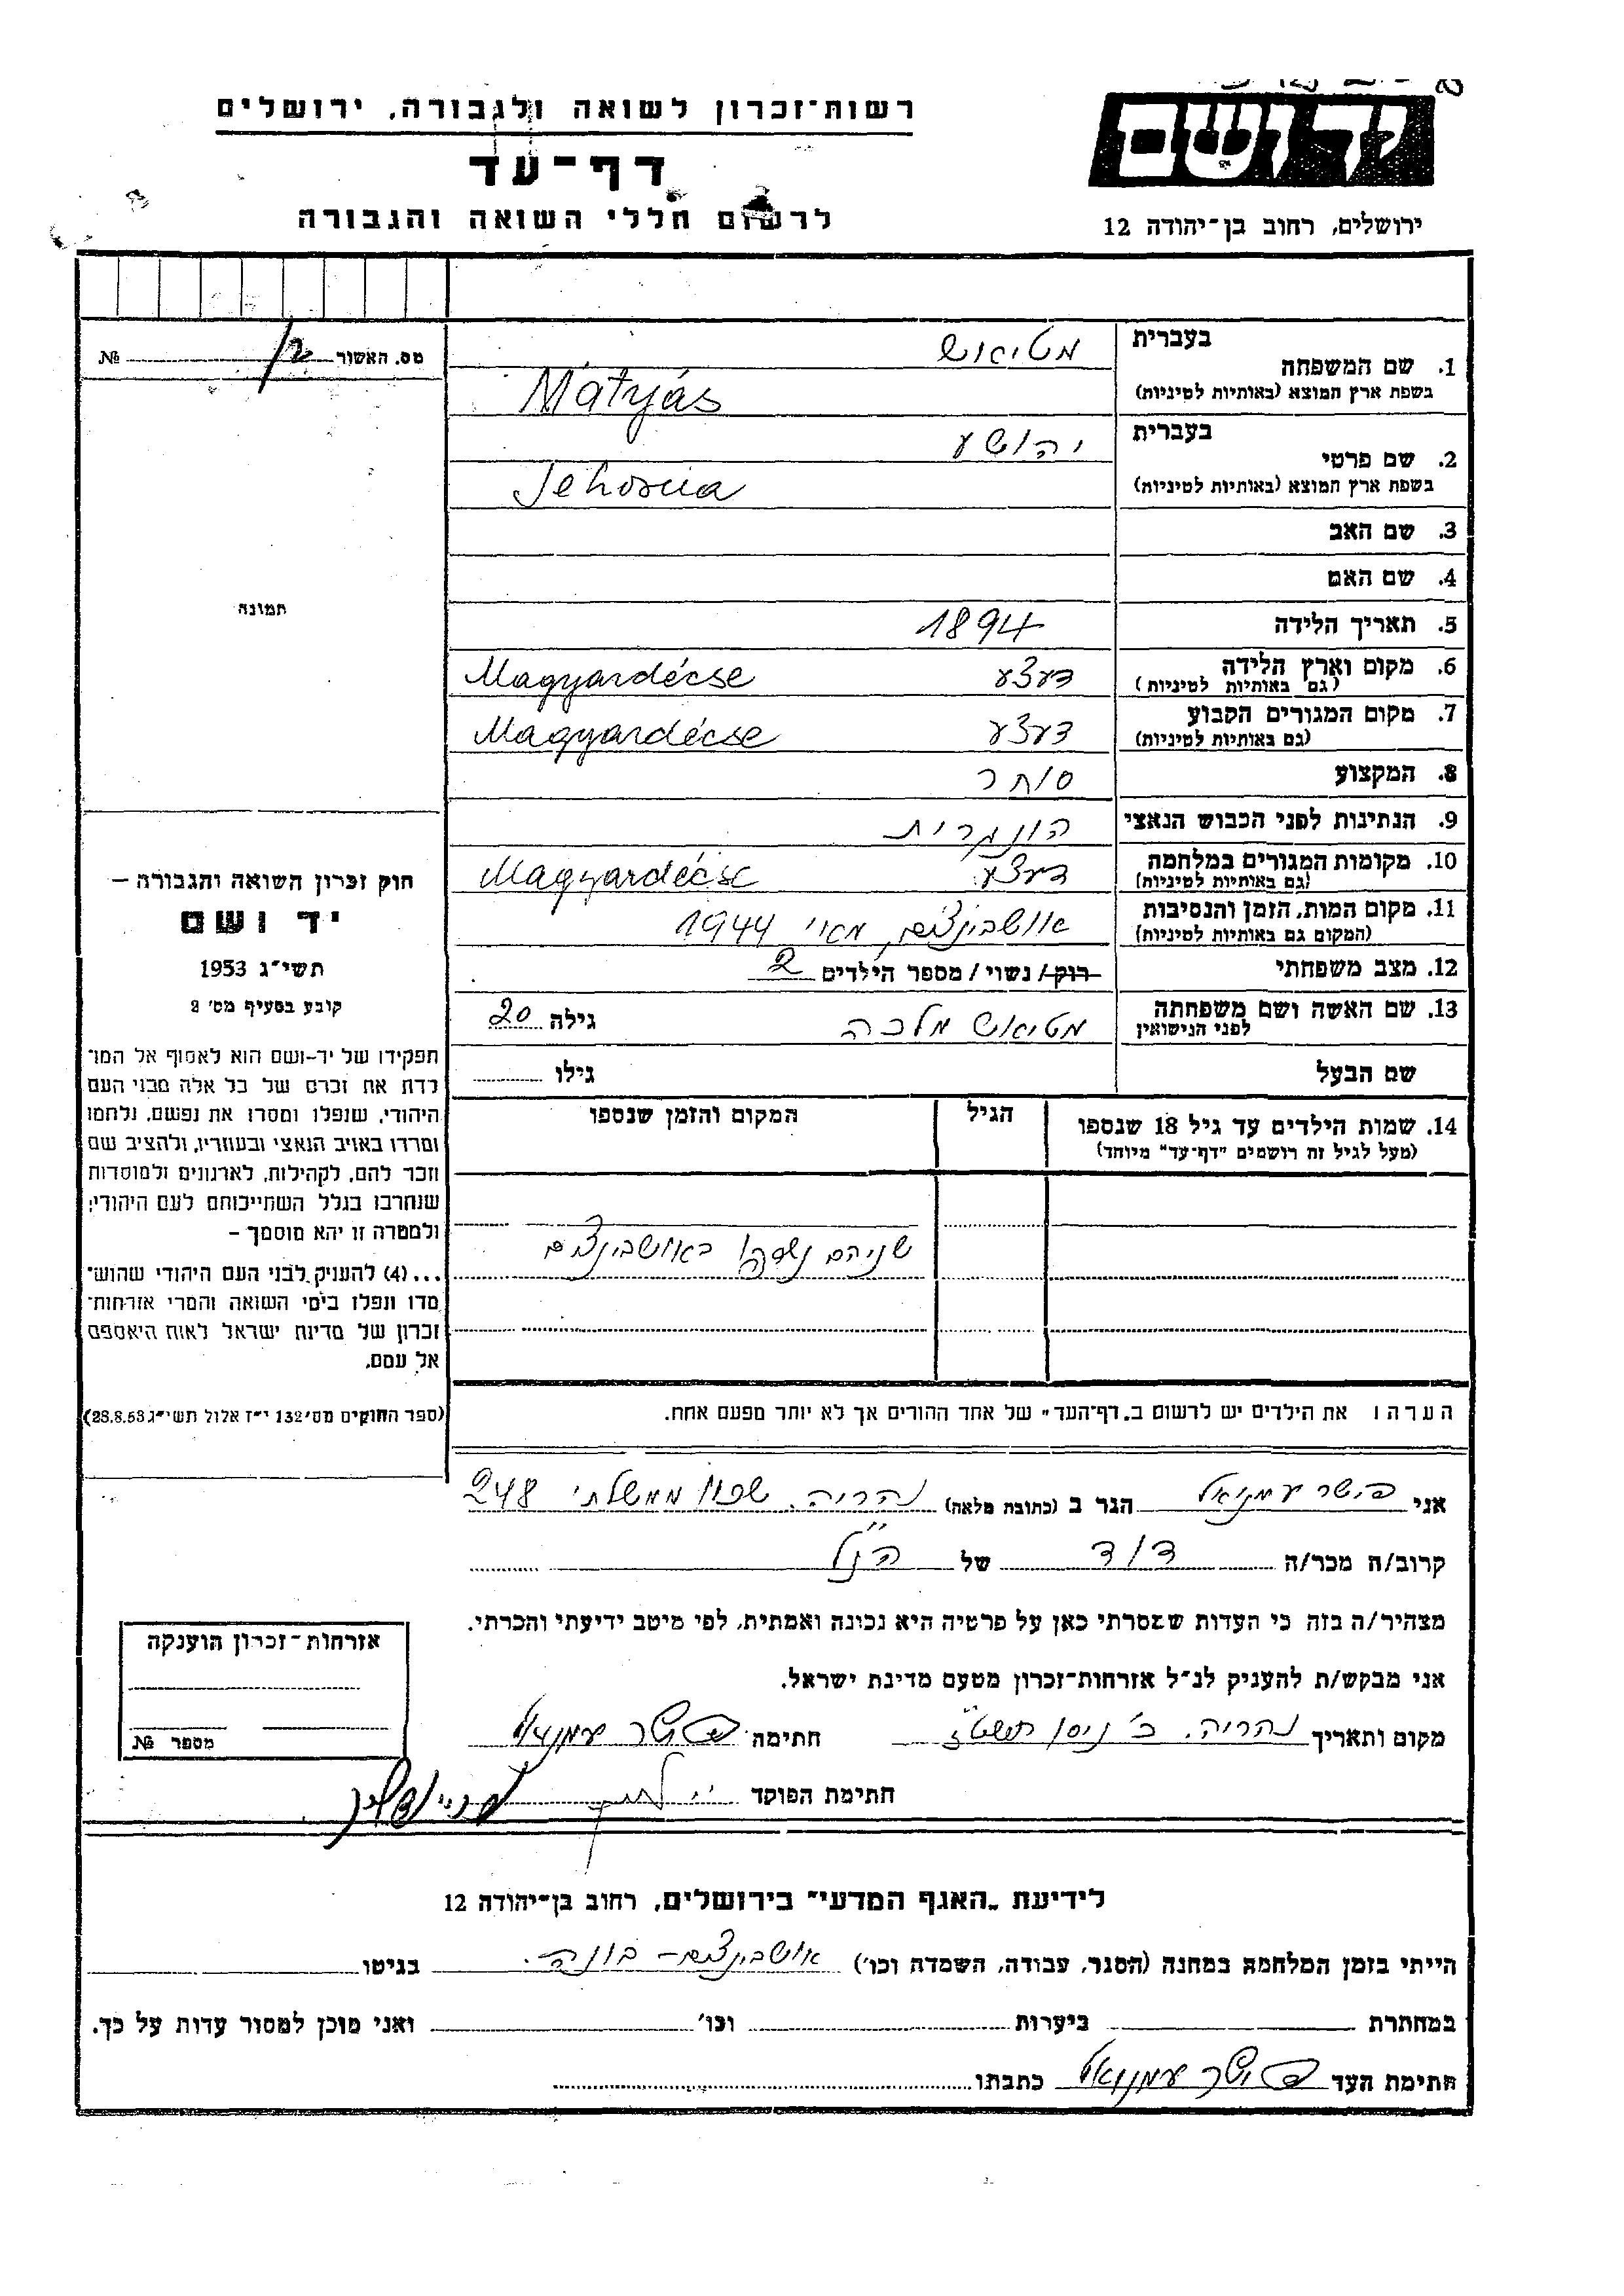 יד ושם
ירושלים, רחוב בן־יהודה 12
רשות־זכרון לשואה ולגבורה, ירושלים
דף־עד
לרשום חללי השואה והגבורה
מס. האשור № 
בעברית מטיאוש
1. שם המשפחה
בשפת ארץ המוצא (באותיות לטיניות) Mátyás
בעברית יהושע
2. שם פרטי
בשפת ארץ המוצא (באותיות לטיניות) Jehosua
3. שם האב
4. שם האם
5. תאריך הלידה 1894
6. מקום וארץ הלידה דעצע Magyardécse
(גם באותיות לטיניות)
7. מקום המגורים הקבוע דעצע Magyardécse
(גם באותיות לטיניות)
8. המקצוע סוחר
9. הנתינות לפני הכבוש הנאצי הונגרית
10. מקומות המגורים במלחמה דעצע Magyardécse
(גם באותיות לטיניות)
11. מקום המות, הזמן והנסיבות אושבינצים, מאי 1944
(המקום גם באותיות לטיניות)
12. מצב משפחתי רוק/ נשוי/ מספר הילדים 2
13. שם האשה ושם משפחתה מטיאוש מלכה גילה 20
לפני הנישואין
שם הבעל גילו
14. שמות הילדים עד גיל 18 שנספו הגיל המקום והזמן שנספו
(מעל לגיל זה רושמים "דף־עד" מיוחד)
שניהם נשרפו באושבינצים
הערה: את הילדים יש לרשום ב„דף־העד" של אחד ההורים אך לא יותר מפעם אחת.
תמונה
חוק זכרון השואה והגבורה –
יד ושם
תשי״ג 1953
קובע בסעיף מס' 2
תפקידו של יד-ושם הוא לאסוף אל המו־
לדת את זכרם של כל אלה מבני העם
היהודי, שנפלו ומסרו את נפשם, נלחמו
ומרדו באויב הנאצי ובעוזריו, ולהציב שם
וזכר להם, לקהילות, לארגונים ולמוסדות
שנחרבו בגלל השתייכותם לעם היהודי;
ולמטרה זו יהא מוסמך –
...(4) להעניק לבני העם היהודי שהוש־
מדו ונפלו בימי השואה והמרי אזרחות־
זכרון של מדינת ישראל לאות היאספם
אל עמם.
(ספר החוקים מס' 132 י״ז אלול תשי״ג 28.8.53)
אני פישר עמנואל הגר ב (כתובת מלאה) נהריה, שכון ממשלתי 248
קרוב/ה מכר/ה דוד של הנ״ל
מצהיר/ה בזה כי העדות שמסרתי כאן על פרטיה היא נכונה ואמתית, לפי מיטב ידיעתי והכרתי.
אני מבקש/ת להעניק לנ״ל אזרחות־זכרון מטעם מדינת ישראל.
מקום ותאריך נהריה, כ' ניסן תשט״ז חתימה פישר עמנואל
חתימת הפוקד
אזרחות־זכרון הוענקה
מספר №
לידיעת „האגף המדעי" בירושלים, רחוב בן־יהודה 12
הייתי בזמן המלחמה במחנה (הסגר, עבודה, השמדה וכו') אושבינצים - בונה. בגיטו
במחתרת ביערות וכו' ואני מוכן למסור עדות על כך.
חתימת העד פישר עמנואל כתבתו